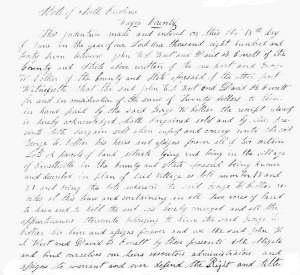 State of North Carolina
County
This indenture made and entered on this the 18th day
of June in the year of our Lord one thousand eight hundred and
forty seven between John McI West and David D. of the
County and State above written of the one part and George
W. of the County and State aforesaid of the other part
Witnesseth that the said John McI West and David D.
for and in consideration of the sum of Twenty dollars to them
in hand paid by the said George W. the receipt whereof
is hereby acknowledged hath bargained sold and by these pre
sents doth bargain sell alien enfeoff and convey unto the said
George W. his heirs and assigns forever all of two certain
Lots or parcels of land situate lying and being in the village
of in the County and State aforesaid being known
and described in plan of said Village as lots number 18 and
21 and being the lots whereon the said George W.
resides at this time and containing in all two acres of land
to have and to hold the said Lots hereby conveyed and all the
appurtenances thereunto belonging to him the said George W.
his heirs and assigns forever and we the said John McI
West and David D. by these presents doth obligate
and bind ourselves our heirs executors administrators and
assigns to warrant and ever defend the Right and title